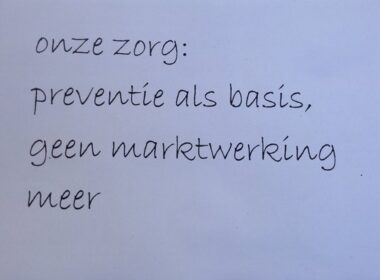 onze zorg:
preventie als basis,
geen marktwerking
meer